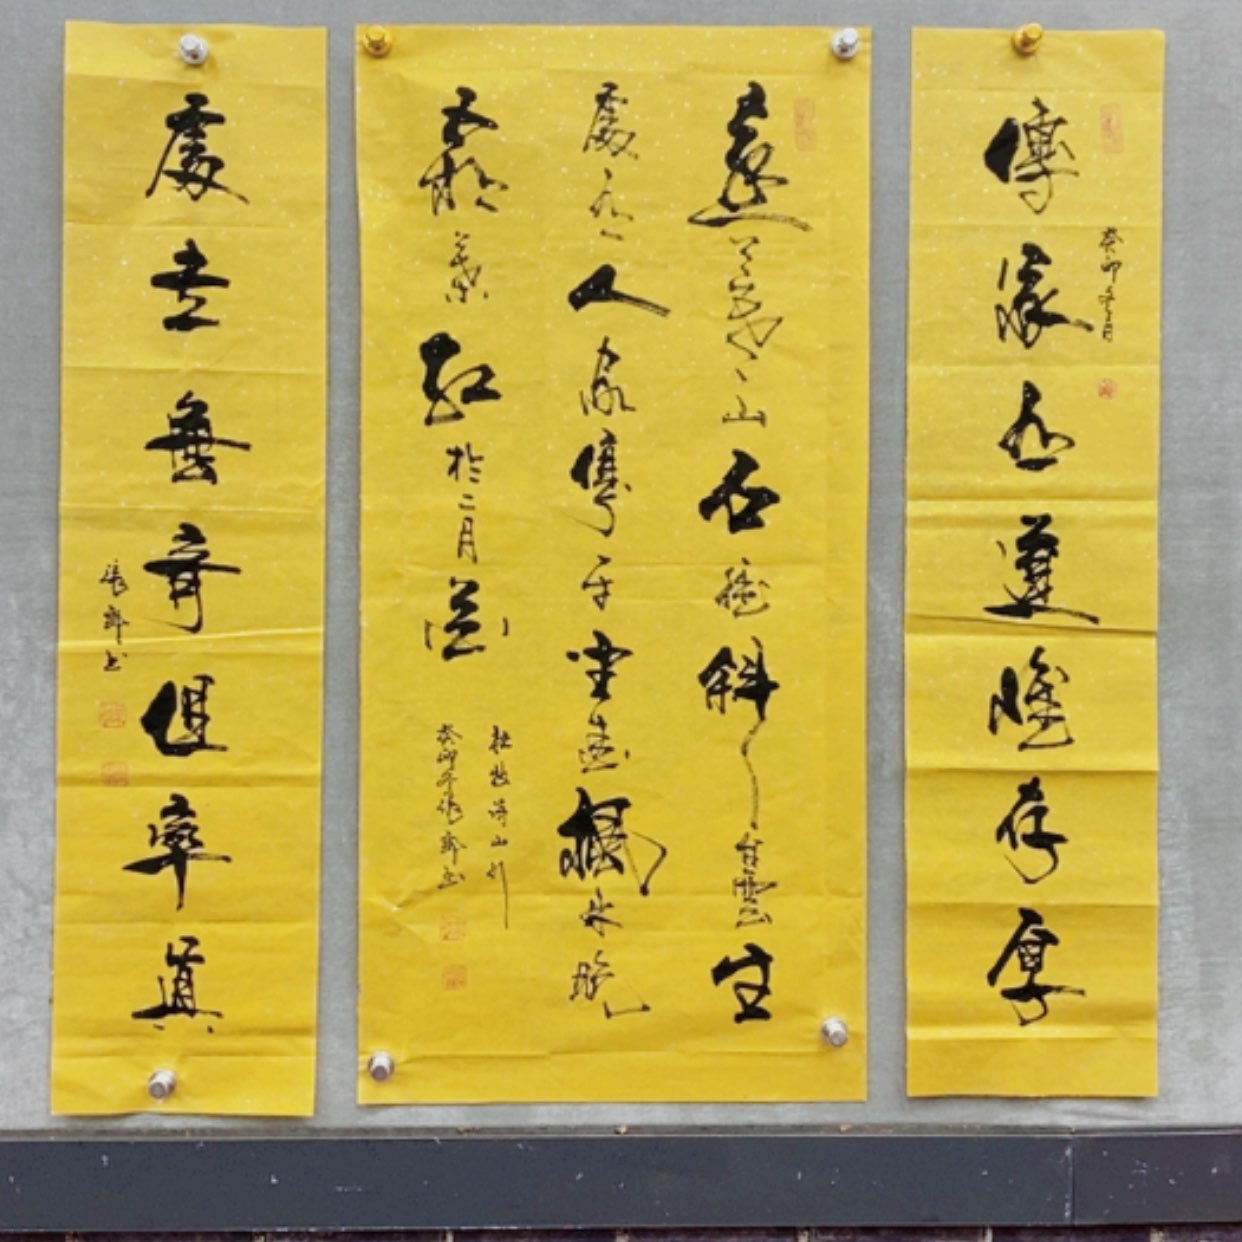 傳家有道惟存厚
癸卯冬月
遠上寒山石徑斜白雲生
處有人家停車坐愛楓林晚
霜葉紅於二月花
杜牧詩山行
癸卯冬張书
處世無奇但率真
張书